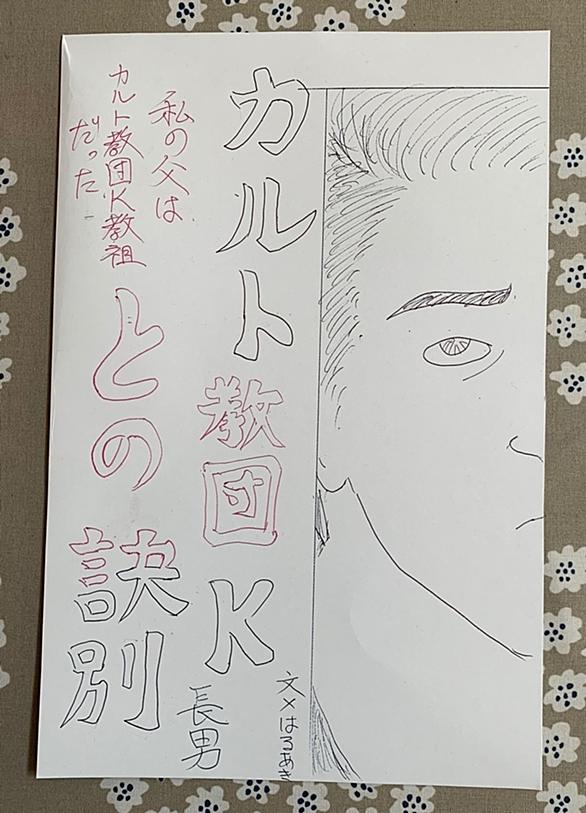 カルト教団K
との訣別
私の父は
カルト教団K教祖
だった
長男
文×はるあき